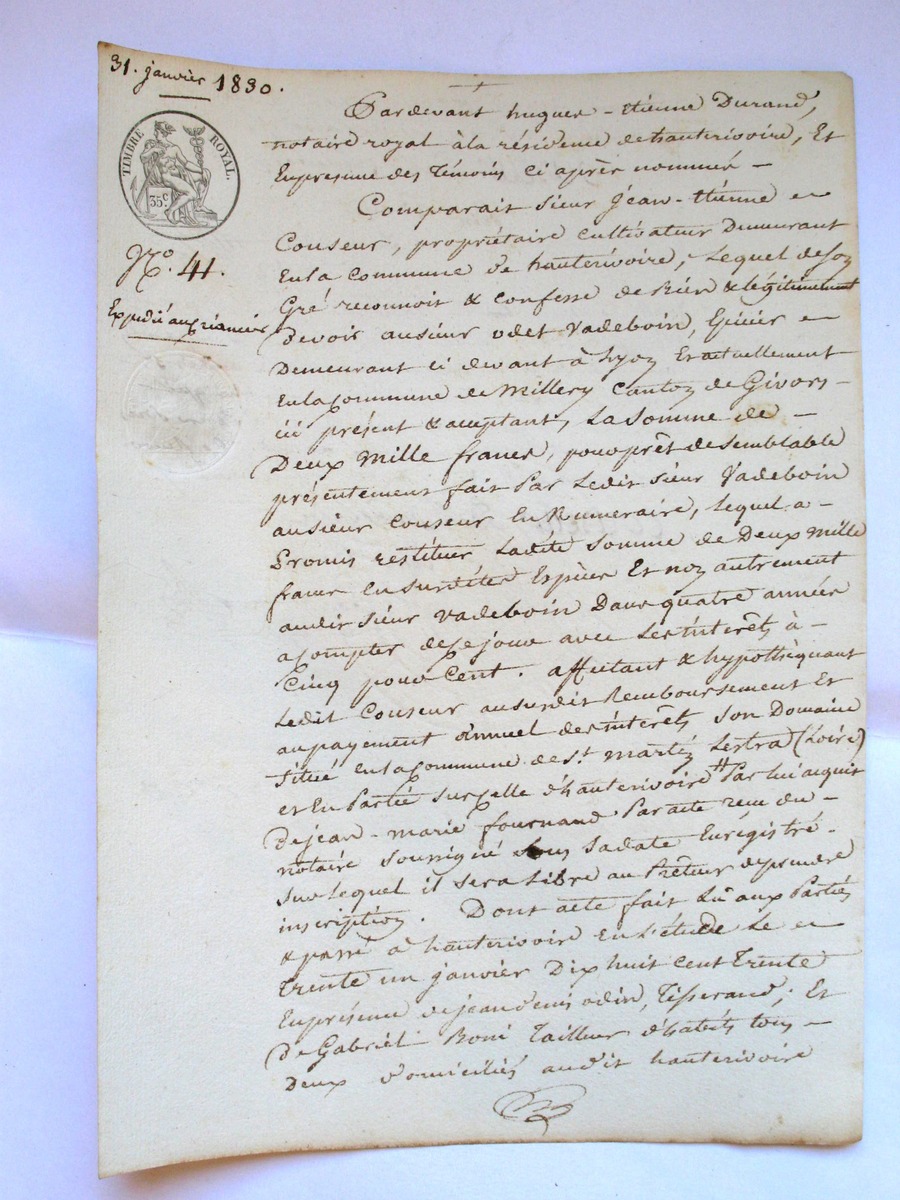 31. janvier 1830.
TIMBRE ROYAL.
35 c.
No. 41.
Expédié au créancier
Pardevant hugues-étienne Durand,
notaire royal à la résidence de hauterivoire, Et
En présence des Témoins ci après nommés -
Comparait Sieur Jéan-étienne
Couseur, propriétaire cultivateur Demeurant
En la Commune de hauterivoire, Lequel de son
Gré reconnoit & confesse de bien & légitimement
Devoir au sieur odet Vadeboin, Epicier
Demeurant ci devant à Lyon Et actuellement
En la Commune de Millery Canton de Givors -
ici présent & acceptant, La Somme de -
Deux Mille francs, pour prêt de semblable
présentement fait Par Ledit Sieur Vadeboin
au sieur Couseur En Numeraire, Lequel a -
Promis restituer Ladite Somme de Deux Mille
francs en susdites Espèces Et non autrement
audit Sieur Vadeboin Dans quatre années
a compter de ce jour avec Les interêts à -
Cinq pour Cent. affectant & hypothéquant
Ledit Couseur au susdit Remboursement Et
au payement annuel des interêts Son Domaine
Situé en la Commune de St. martin Lestra (Loire)
et En Partie sur celle d'hauterivoire # Par lui acquit
De jean-marie fournand Par acte reçu du -
notaire Soussigné Sous Sa date Enregistré -
sur Lequel il sera Libre au Prêteur de prendre
inscription. Dont acte fait Lû aux Parties
& passé à hauterivoire en L'étude Le
Trente un janvier Dix huit cent Trente
En présence de jean denis odin, Tisserand; Et
De Gabriel Tailleur d'habits tous -
Deux domiciliés audit hauterivoire